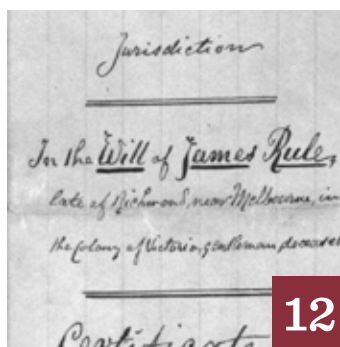 Jurisdiction
In the Will of James Rule,
late of Richmond, near Melbourne, in
the Colony of Victoria, gentleman, deceased
Certificate
12